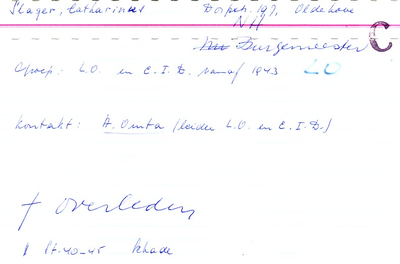 Slager, Catharinus Dorpstr. 197, Oldehove
NH
Burgemeester C
Groep: L.O. en C.I.D. vanaf 1943 LO
Kontakt: A. Omta (leider L.O. en C.I.D.)
† overleden
St. 40-45 Schade